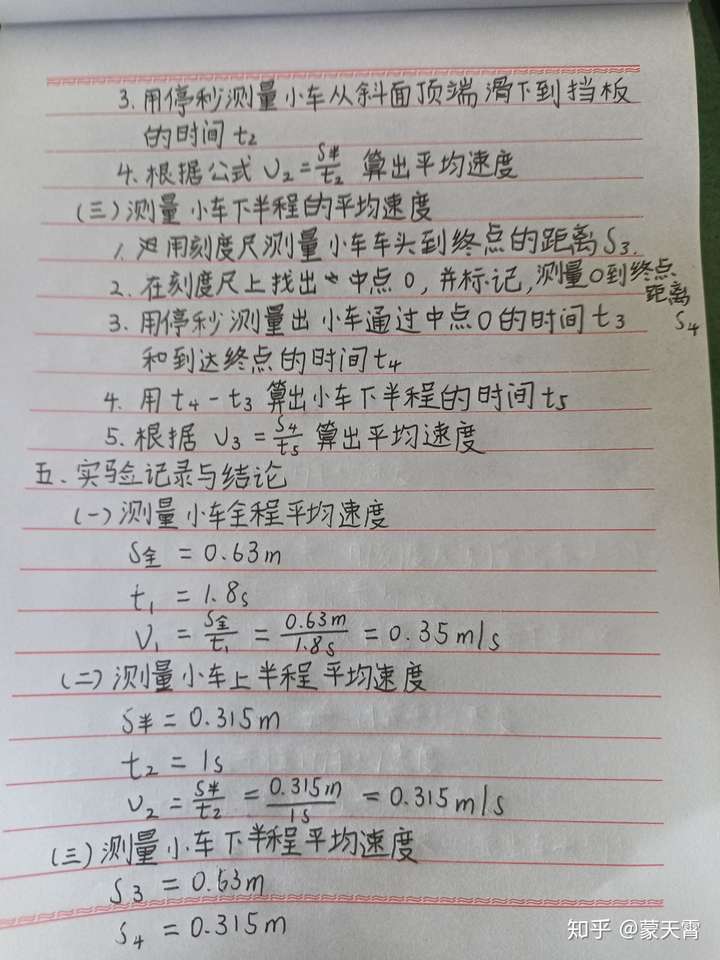 3. 用停秒测量小车从斜面顶端滑下到挡板
的时间t₂
4. 根据公式 υ₂=S半/t₂ 算出平均速度
(三)测量小车下半程的平均速度
1. 用刻度尺测量小车车头到终点的距离S₃.
2. 在刻度尺上找出中点O,并标记,测量O到终点
距离
S₄
3. 用停秒测量出小车通过中点O的时间t₃
和到达终点的时间t₄
4. 用t₄-t₃算出小车下半程的时间t₅
5. 根据 υ₃=S₄/t₅ 算出平均速度
五、实验记录与结论
(一)测量小车全程平均速度
S全=0.63m
t₁=1.8s
V₁=S全/t₁=0.63m/1.8s=0.35m/s
(二)测量小车上半程平均速度
S半=0.315m
t₂=1s
υ₂=S半/t₂=0.315m/1s=0.315m/s
(三)测量小车下半程平均速度
S₃=0.63m
S₄=0.315m
知乎 @蒙天霄